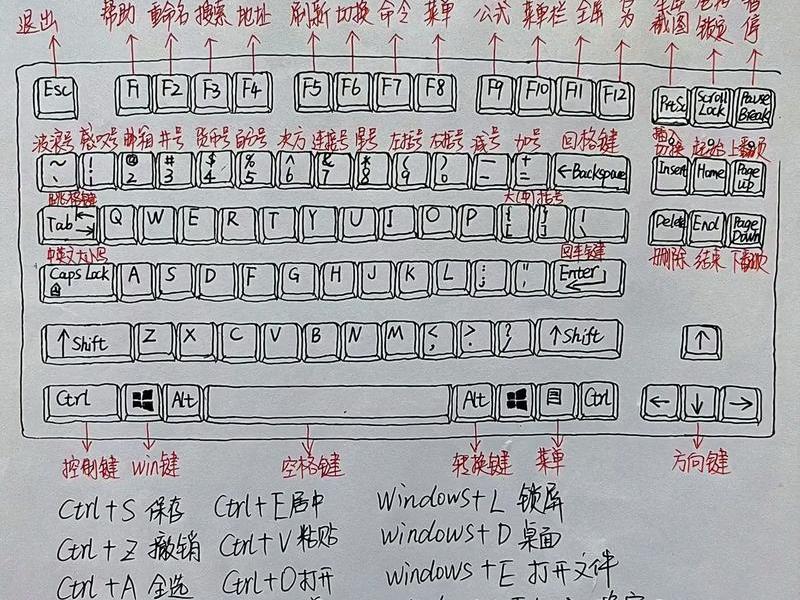 退出 帮助 重命名 搜索 地址 刷新 切换 命令 菜单 公式 菜单栏 全屏
截图 锁定 暂停
Esc F1 F2 F3 F4 F5 F6 F7 F8 F9 F10 F11 F12 PrtSc Scroll Lock Pause Break
波浪号 感叹号 邮箱 井号 货币号 百分号 次方 连接号 星号 左括号 右括号 减号 加号 回格键 插入 切换 起始 上翻页
~ ` ! 1 @ 2 # 3 $ 4 % 5 ^ 6 & 7 * 8 ( 9 ) 0 — - + = ←Backspace Insert Home Page up
跳格键 大(中)括号
Tab Q W E R T Y U I O P { [ } ] | \ Delete End Page Down
中英文大小写 回车键 删除 结束 下翻页
Caps Lock A S D F G H J K L : ; " ' Enter
↑Shift Z X C V B N M < , > . ? / ↑Shift ↑
Ctrl Alt Alt Ctrl ← ↓ →
控制键 win键 空格键 转换键 菜单 方向键
Ctrl+S 保存 Ctrl+E居中 Windows+L 锁屏
Ctrl+Z 撤销 Ctrl+V 粘贴 Windows+D 桌面
Ctrl+A 全选 Ctrl+O打开 Windows+E 打开文件